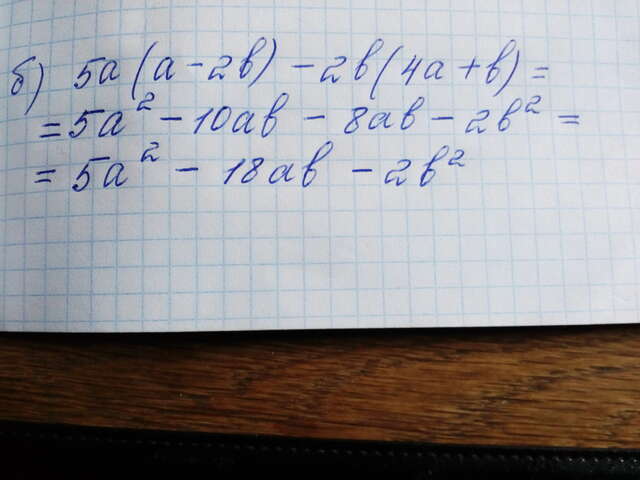 б) 5a(a-2b)-2b(4a+b)=
=5a²-10ab-8ab-2b²=
=5a²-18ab-2b²